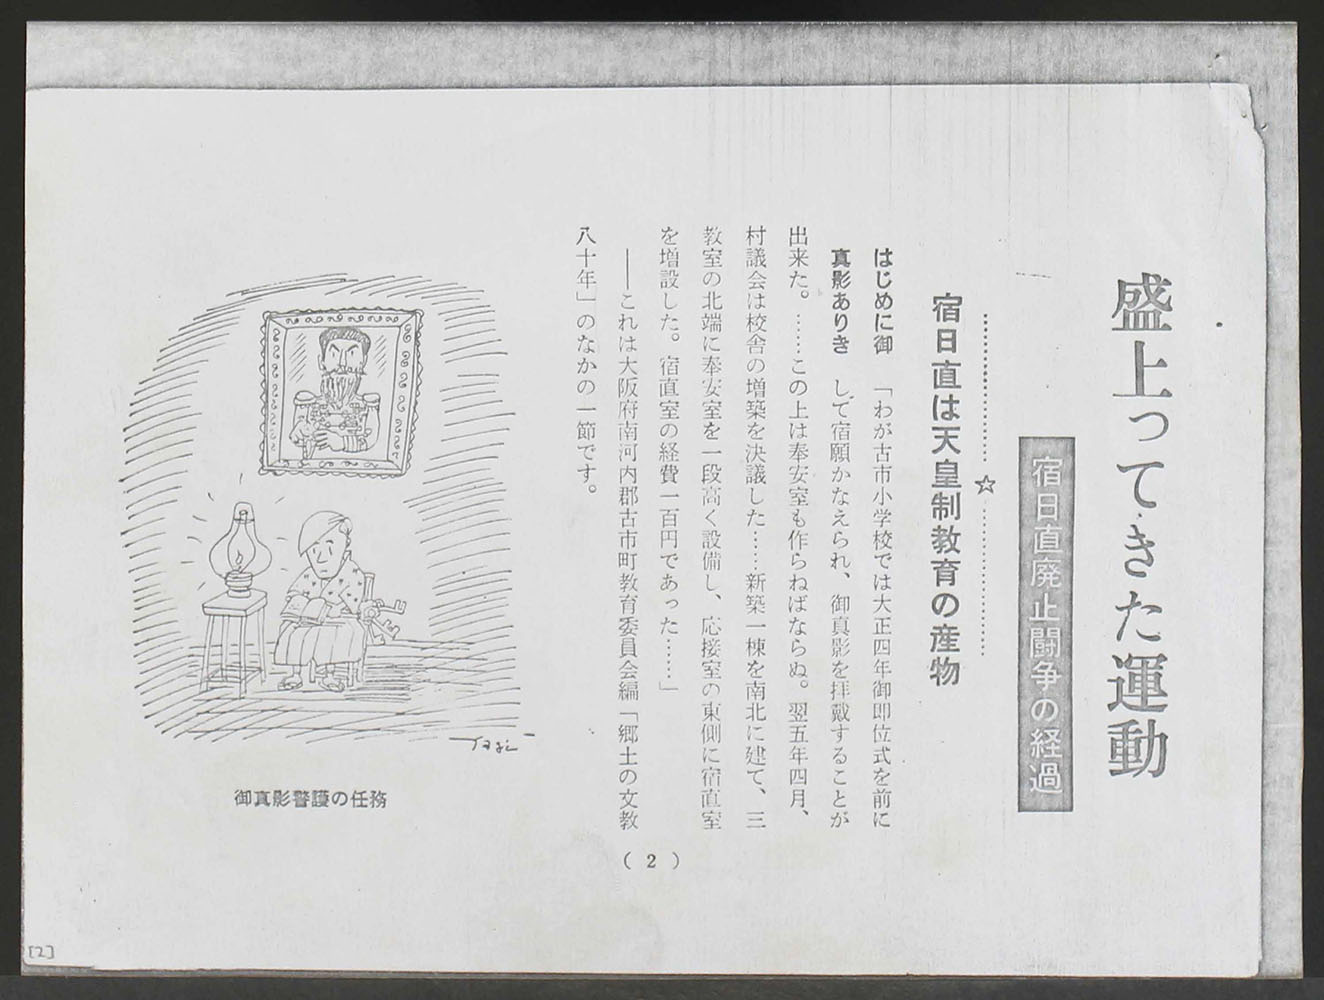 盛上ってきた運動
宿日直廃止闘争の経過
☆
宿日直は天皇制教育の産物
はじめに御
真影ありき
「わが古市小学校では大正四年御即位式を前に
して宿願かなえられ、御真影を拝戴することが
出来た。……この上は奉安室も作らねばならぬ。翌五年四月、
村議会は校舎の増築を決議した……新築一棟を南北に建て、三
教室の北端に奉安室を一段高く設備し、応接室の東側に宿直室
を増設した。宿直室の経費一百円であった……」
――これは大阪府南河内郡古市町教育委員会編「郷土の文教
八十年」のなかの一節です。
御真影警護の任務
( 2 )
[2]